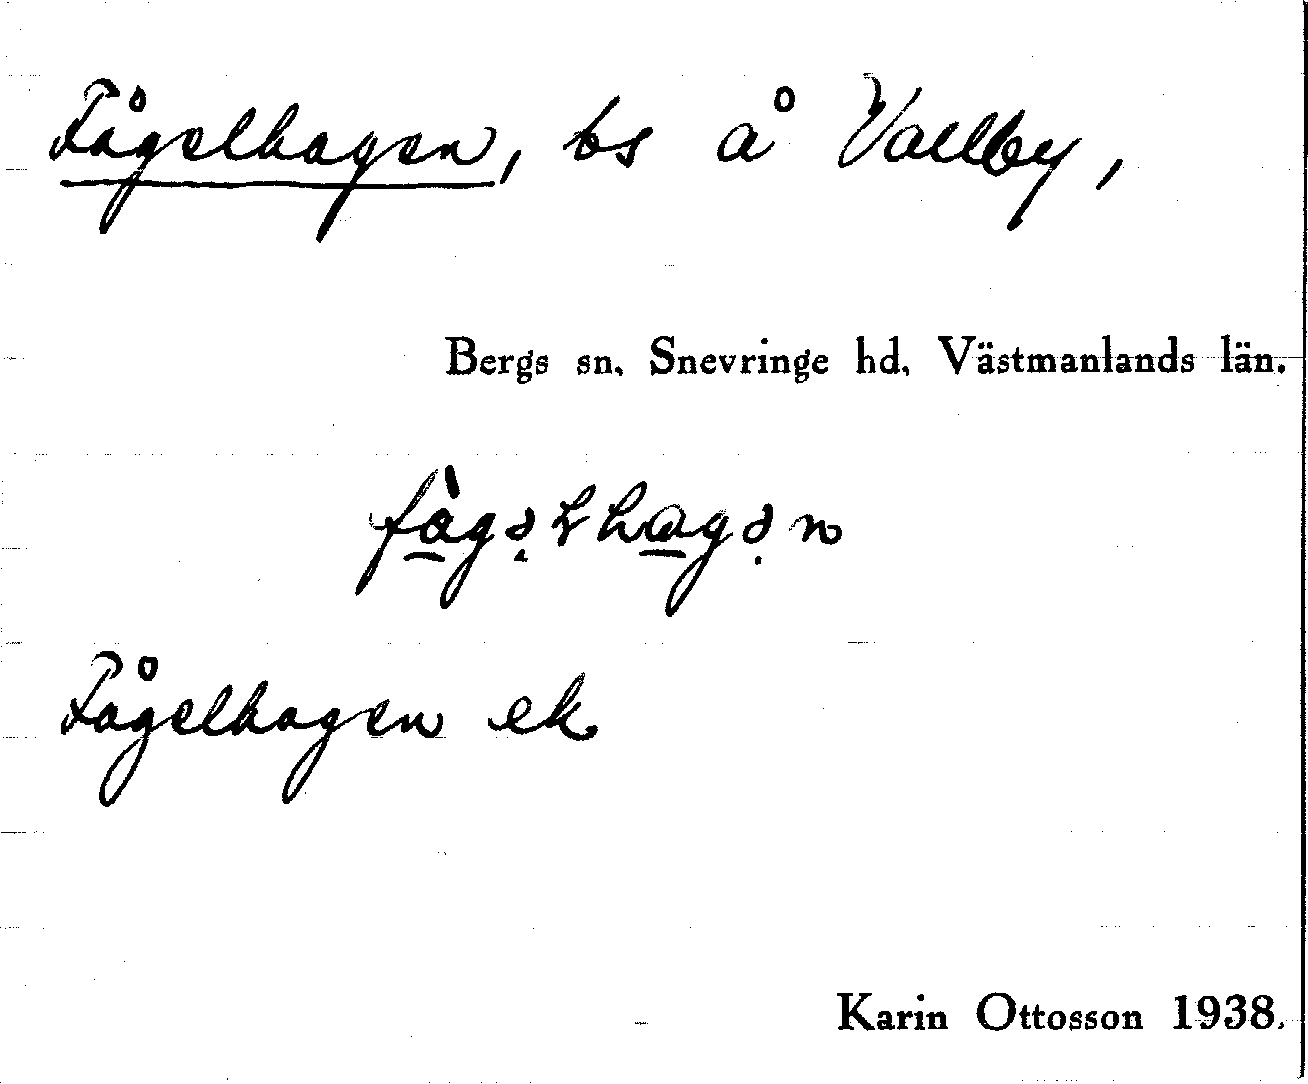 Fågelhagen, bs å Vallby,
Bergs sn, Snevringe hd, Västmanlands län.
Fågelhagen ek
Karin Ottosson 1938.